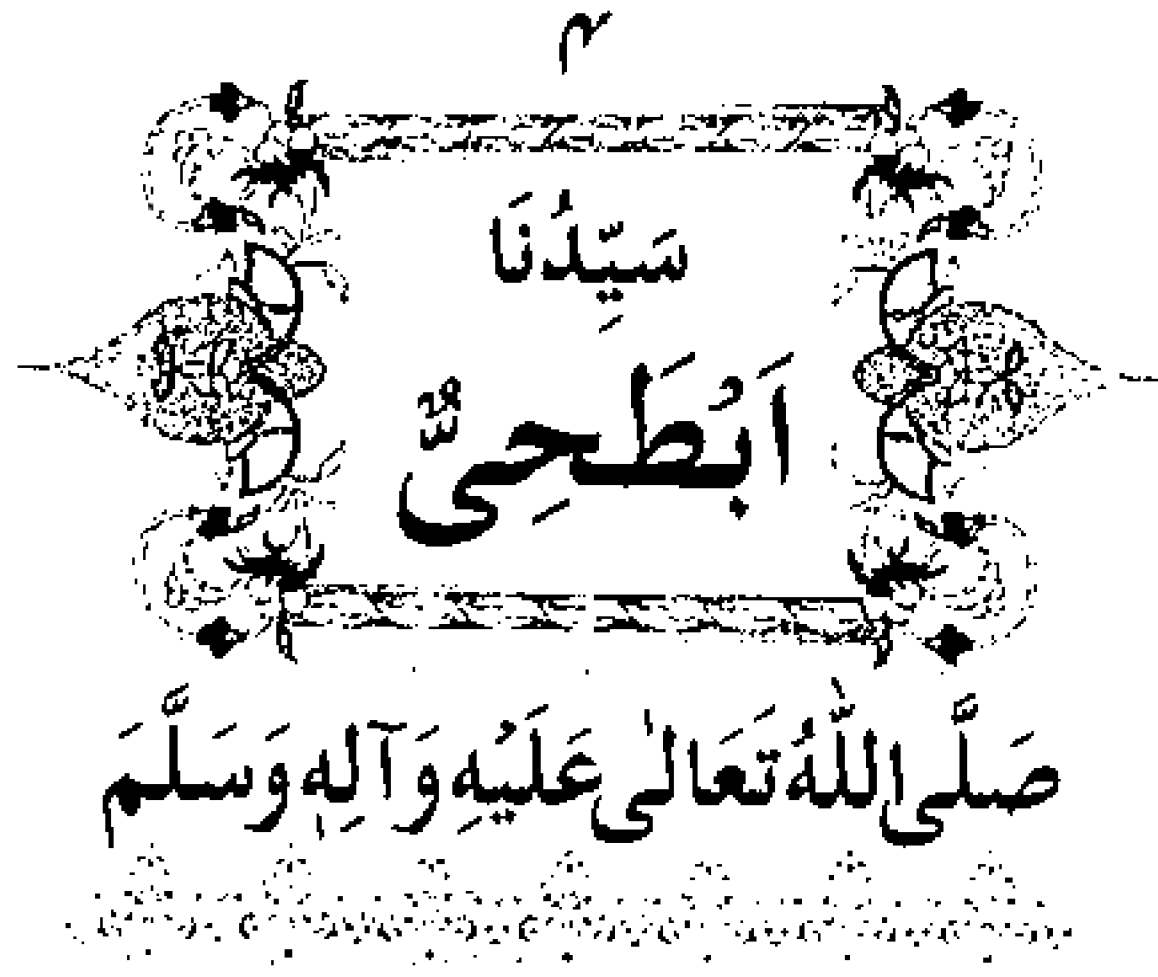 ۴
سَيِّدُنَا
اَبْطَحِىٌّ
صَلَّى اللّٰهُ تَعَالٰى عَلَيْهِ وَآلِهٖ وَسَلَّمَ